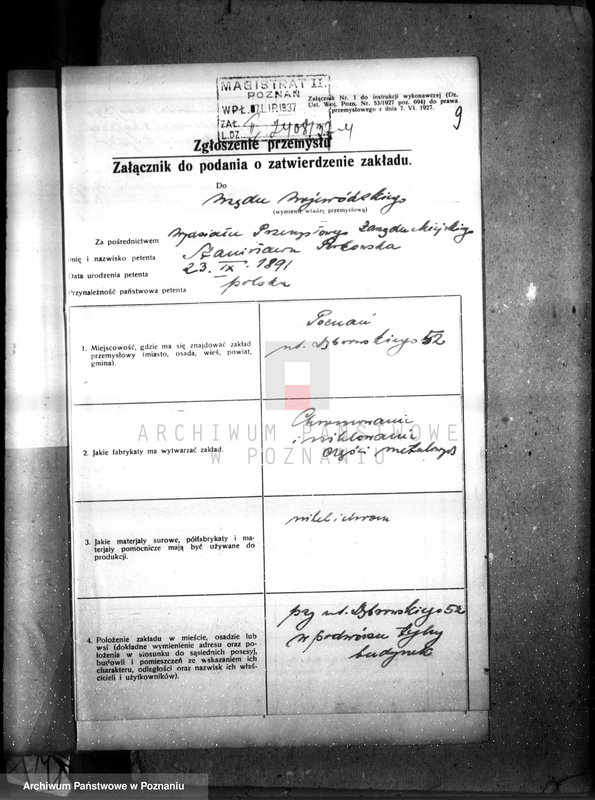 MAGISTRAT II.
POZNAŃ
WPŁ. 17. LIP. 1937
ZAŁ.
L. DZ.
Załącznik Nr. 1 do instrukcji wykonawczej (Dz.
Ust. Woj. Pozn. Nr. 53/1927 poz. 694) do prawa
przemysłowego z dnia 7. VI. 1927.
9
Zgłoszenie przemysłu
Załącznik do podania o zatwierdzenie zakładu.
Do
Urzędu Wojewódzkiego
(wymienić władzę przemysłową)
Za pośrednictwem Wydziału Przemysłowego Zarządu Miejskiego
Imię i nazwisko petenta Stanisława
Data urodzenia petenta 23. IX. 1891
Przynależność państwowa petenta polska
1. Miejscowość, gdzie ma się znajdować zakład
przemysłowy (miasto, osada, wieś, powiat,
gmina).
Poznań
ul. Dąbrowskiego 52
2. Jakie fabrykaty ma wytwarzać zakład.
Chromowanie
i niklowanie
części metalowych
3. Jakie materjały surowe, półfabrykaty i ma-
terjały pomocnicze mają być używane do
produkcji.
nikel i chrom
4. Położenie zakładu w mieście, osadzie lub
wsi (dokładne wymienienie adresu oraz po-
łożenia w stosunku do sąsiednich posesyj,
budowli i pomieszczeń ze wskazaniem ich
charakteru, odległości oraz nazwisk ich właś-
cicieli i użytkowników).
przy ul. Dąbrowskiego 52
w podwórzu tylny
budynek
ARCHIWUM PAŃSTWOWE
W POZNANIU
Archiwum Państwowe w Poznaniu